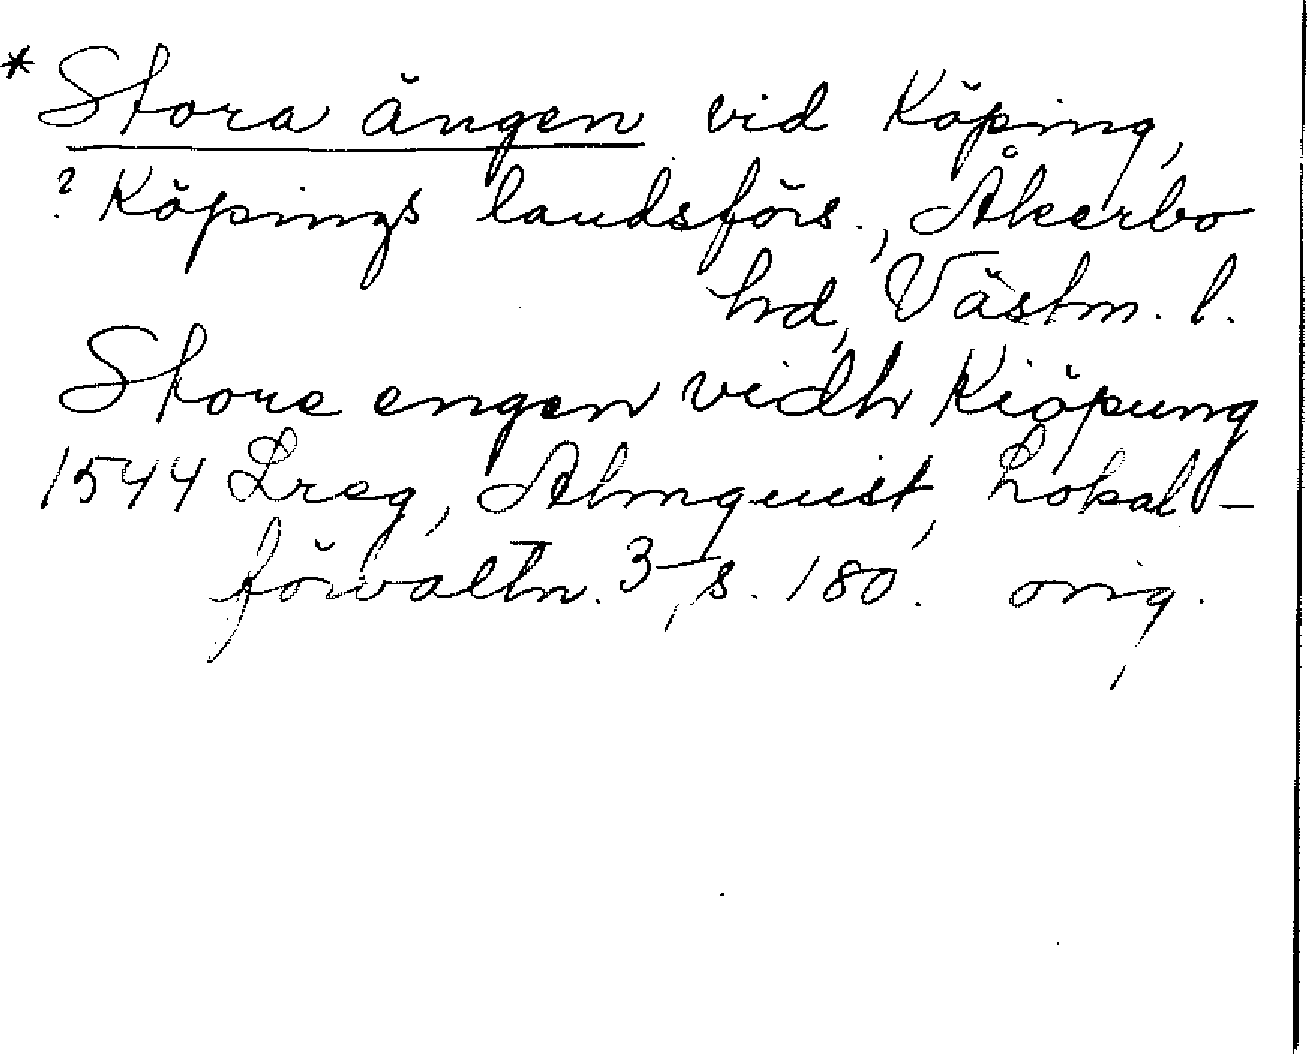 * Stora ängen vid Köping,
? Köpings landsförs., Åkerbo
hd, Västm. l.
Store engen vidh Kiöpung
1544 Lreg, Almquist, Lokal-
förvaltn. 3, s. 180. orig.